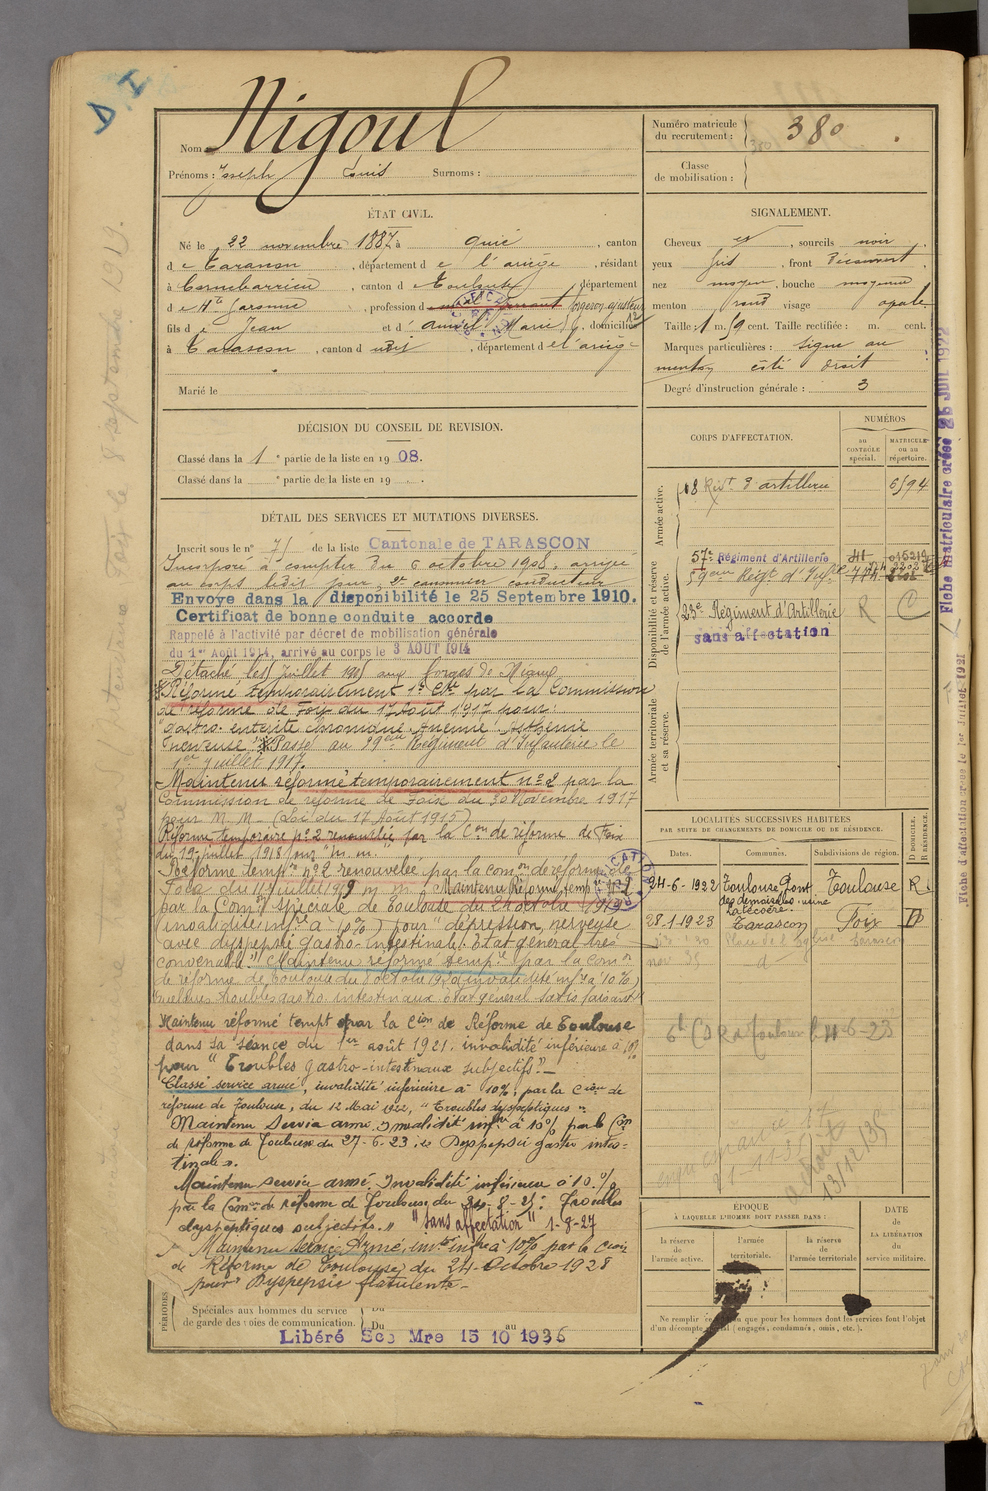 D. I
Nom : Nigoul
Prénoms : Joseph Louis Surnoms :
Numéro matricule du recrutement : 380
Classe de mobilisation :
ÉTAT CIVIL.
Né le 22 novembre 1887 à Quié, canton
de Tarascon, département de l'ariège, résidant
à Cornebarrieu, canton de Toulouse, département
de Hte Garonne, profession de forgeron
fils de Jean et d' Marie, domiciliés
à Tarascon, canton dudit, département de l'ariège
Marié le
SIGNALEMENT.
Cheveux, sourcils noir
yeux gris, front Découvert
nez moyen, bouche moyenne
menton rond visage ovale
Taille : 1 m. 59 cent. Taille rectifiée : m. cent.
Marques particulières : signe au
menton côté droit
Degré d'instruction générale : 3
DÉCISION DU CONSEIL DE REVISION.
Classé dans la 1e partie de la liste en 1908.
Classé dans la e partie de la liste en 19 .
DÉTAIL DES SERVICES ET MUTATIONS DIVERSES.
Inscrit sous le n° 75 de la liste Cantonale de TARASCON
Incorporé à compter du 6 octobre 1908, arrivé
au corps ledit jour, 2e canonnier conducteur
Envoye dans la disponibilité le 25 Septembre 1910.
Certificat de bonne conduite accorde
Rappelé à l'activité par décret de mobilisation générale
du 1er Août 1914, arrivé au corps le 3 AOUT 1914
Détaché le Juillet aux forges de
Réformé temporairement par la Commission
de réforme de Foix du 17 Août 1917 pour :
gastro-entérite chronique Anémie Asthénie
nerveuse. Passé au 59eme Régiment d'Infanterie le
1er Juillet 1917.
Maintenu réformé temporairement n° 2 par la
Commission de réforme de Foix du 30 Novembre 1917
pour M. M - (Loi du 17 Août 1915)
Réforme temporaire n° 2 renouvelée par la Con de réforme de Foix
du 19 juillet 1918 pour "m. m."
Réforme tempre n° 2 renouvelée par la comon de réforme de
Foix du 11 juillet 1919 m m. Maintenu Réformé temp n° 2
par la Comon spéciale de Toulouse du 24 octobre 1919
invalidité infre à 10%) pour "dépression nerveuse
avec dyspepsie gastro-intestinale. Etat général très
convenable." Maintenu réformé tempre par la Comon
de réforme de Toulouse du 8 octobre 1920 invalidité infre à 10%)
troubles gastro intestinaux état général satisfaisant
Maintenu réformé tempt par la Cion de Réforme de Toulouse
dans sa séance du 1er août 1921. invalidité inférieure à 10%
pour "Troubles gastro-intestinaux subjectifs." -
Classé service armé, invalidité inférieure à 10%, par la Cion de
réforme de Toulouse, du 12 Mai 1922, "Troubles dyspeptiques".
Maintenu Service armé. Invalidité infre à 10% par la Con
de réforme de Toulouse du 27-6-23. Dyspepsie gastro intes-
tinale".
Maintenu service armé. Invalidité inférieure à 10 %
par la Comon de Réforme de Toulouse du 8-25 : Troubles
dyspeptiques subjectifs." "sans affectation" 1-8-27
Maintenu Service Armé, invté infre à 10% par la Cion
de Réforme de Toulouse du 24 Octobre 1928
pour Dyspepsie flatulente -
PÉRIODES
Spéciales aux hommes du service
de garde des voies de communication.
Du
Du au
Libéré Sce Mre 15 10 1936
CORPS D'AFFECTATION.
NUMÉROS
AU CONTRÔLE spécial.
MATRICULE ou au répertoire.
Armée active.
18 Régt d'artillerie 6594
Disponibilité et réserve de l'armée active.
57e Régiment d'Artillerie
59eme Régt d'Infie
23e Régiment d'Artillerie R C
sans affectation
Armée territoriale et sa réserve.
LOCALITÉS SUCCESSIVES HABITÉES
PAR SUITE DE CHANGEMENTS DE DOMICILE OU DE RÉSIDENCE.
Dates. Communes. Subdivisions de région. D DOMICILE. R RÉSIDENCE.
24-6-1922 Toulouse Pont des demoiselles usine Latécoère. Toulouse R
28-1-1923 Tarascon Foix D
Place de l'Eglise Tarascon
nov 35
ÉPOQUE
À LAQUELLE L'HOMME DOIT PASSER DANS :
la réserve de l'armée active.
l'armée territoriale.
la réserve de l'armée territoriale
DATE de LA LIBÉRATION du service militaire.
13/12/35
Fiche matriculaire créée 25 JUIL 1922
Fiche d'affectation créée le 1er Juillet 1921